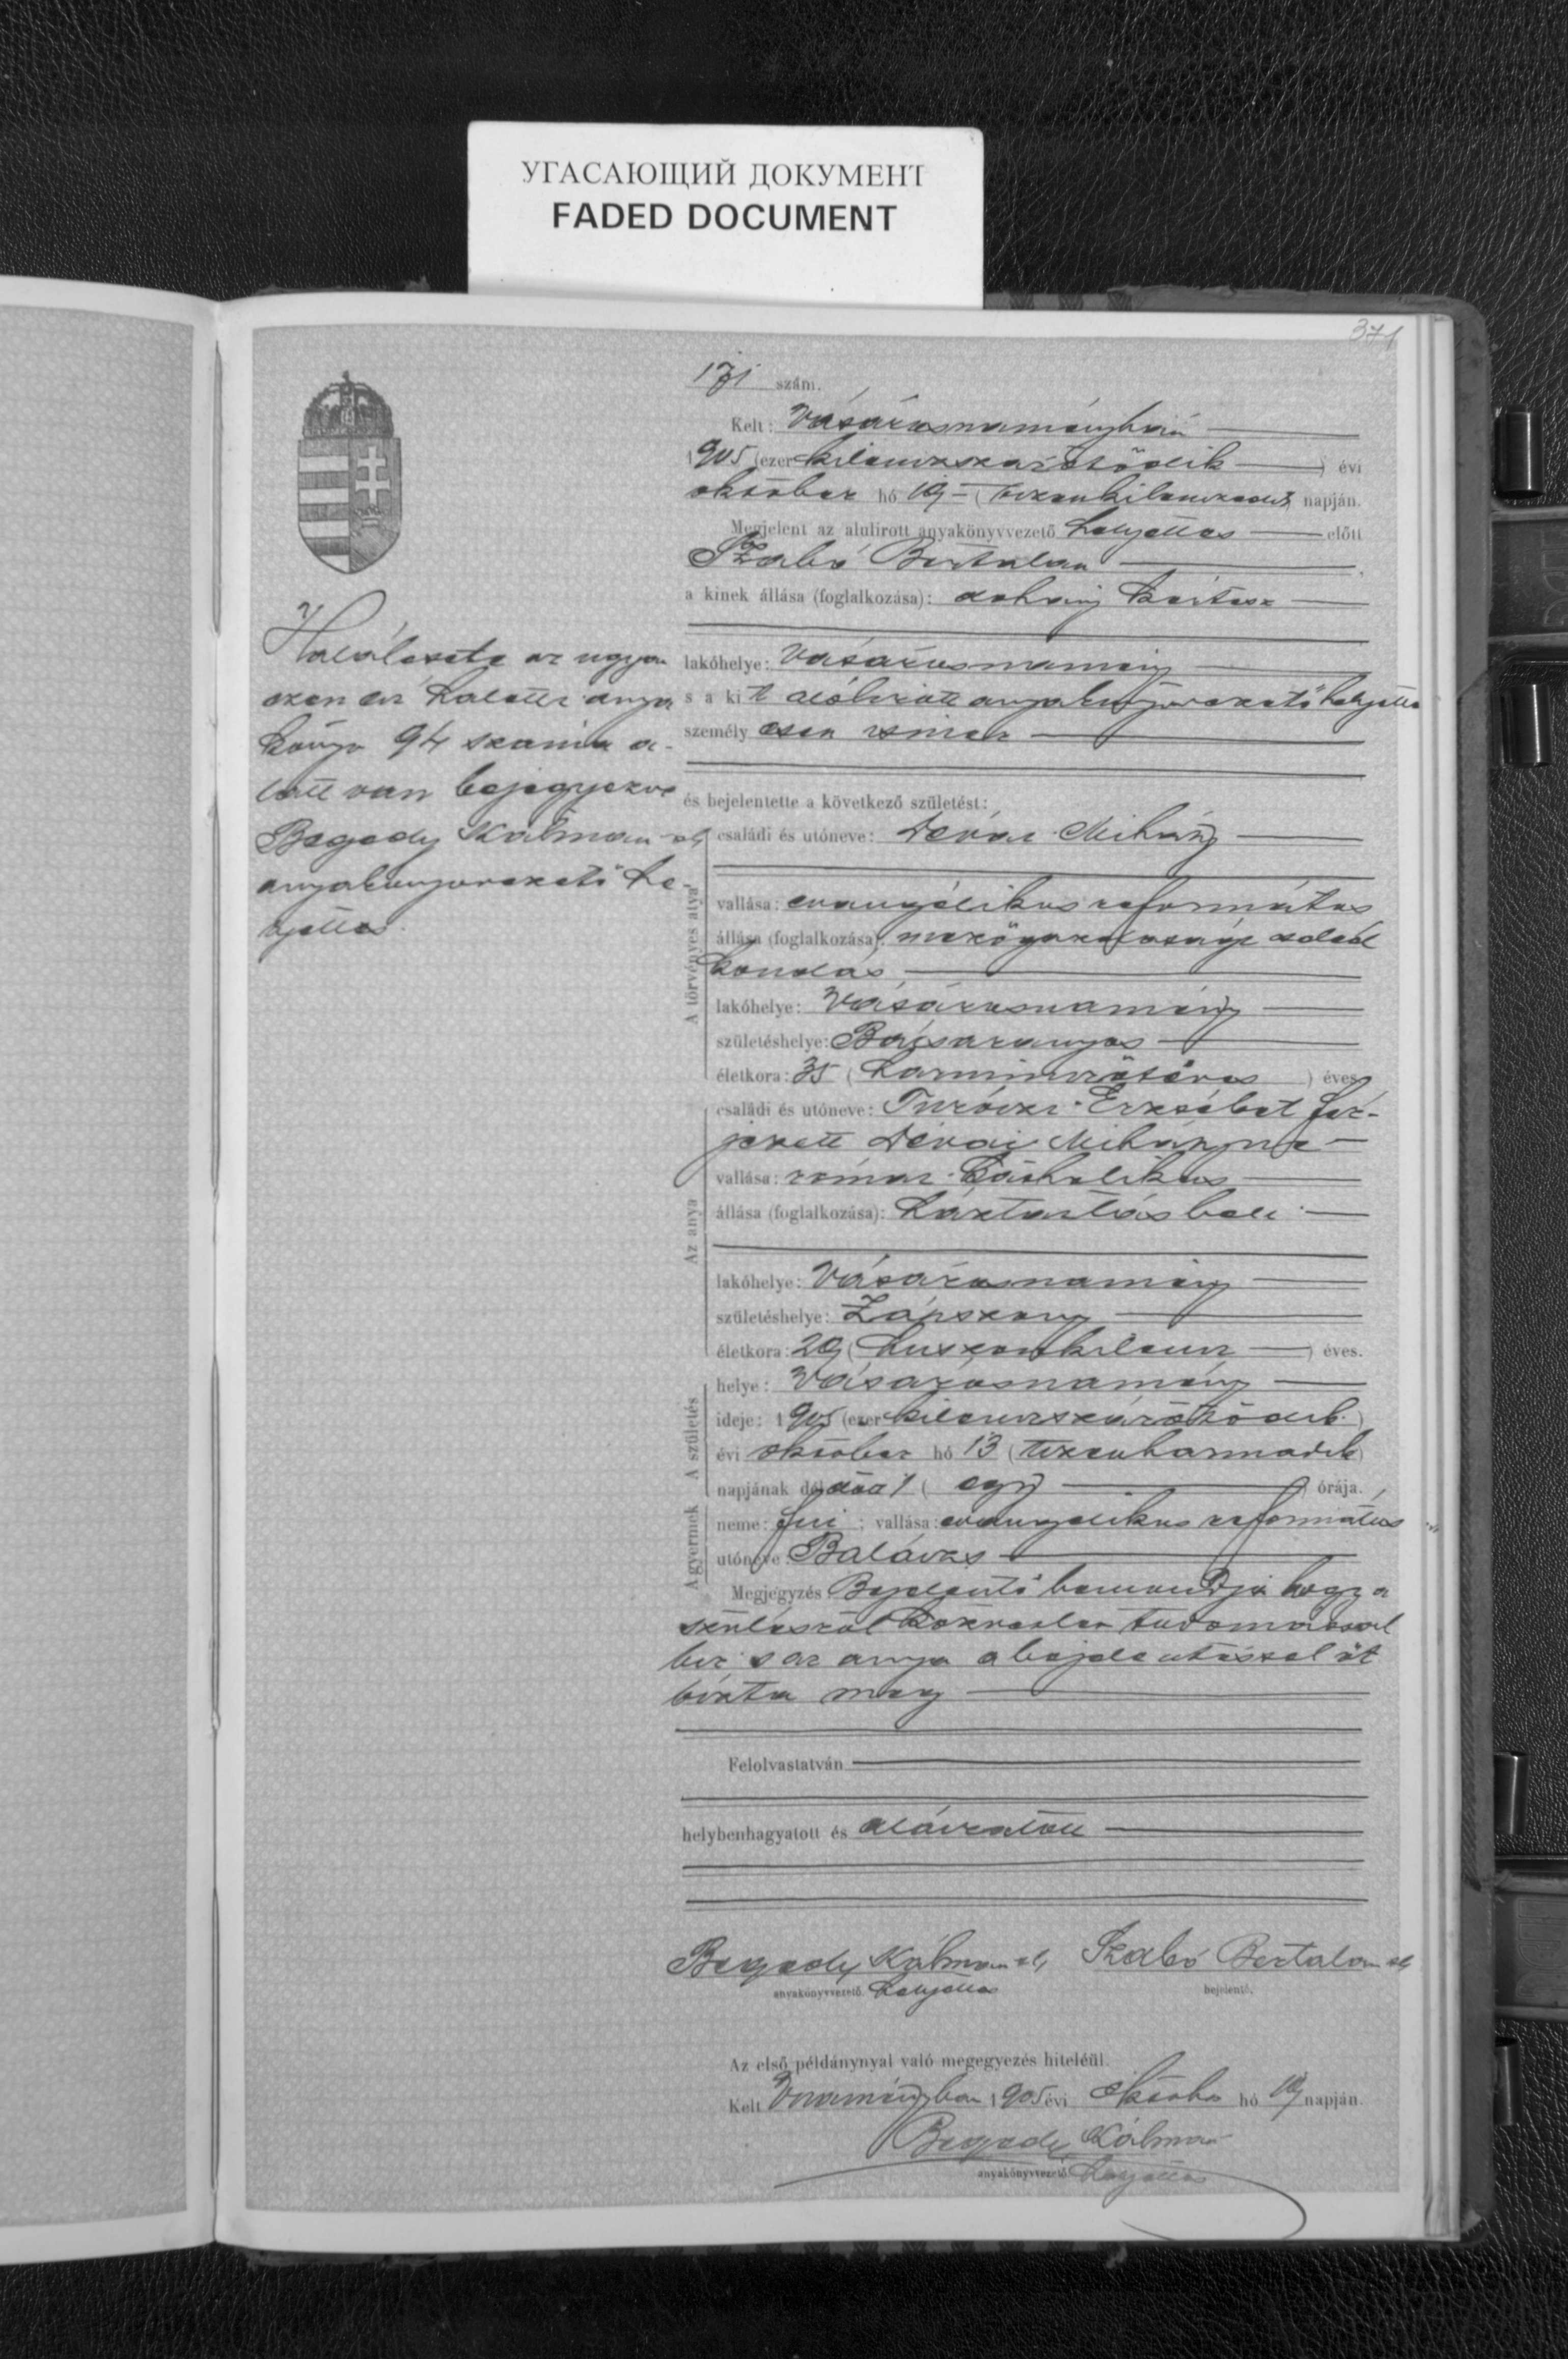 УГАСАЮЩИЙ ДОКУМЕНТ
FADED DOCUMENT
371
171 szám.
Kelt: Vásárosnaményban
1905 (ezerkilenczszázötödik) évi
október hó 19 (tizenkilenczedik) napján.
Megjelent az alulirott anyakönyvvezető helyettes előtt
Szabó Bertalan
a kinek állása (foglalkozása): dohány kertész
lakóhelye: Vásárosnamény
s a kit alólirott anyakönyvvezető helyettes
személyesen ismer
és bejelentette a következő születést:
A törvényes atya
családi és utóneve: Dévai Mihály
vallása: evangélikus református
állása (foglalkozása): mezőgazdasági cseléd
kondás
lakóhelye: Vásárosnamény
születéshelye:
életkora: 35 (harminczötéves) éves
Az anya
családi és utóneve: Turóczi Erzsébet fér-
jezett Dévai Mihályne
vallása: római katholikus
állása (foglalkozása): háztartásbeli
lakóhelye: Vásárosnamény
születéshelye: Zápszony
életkora: 29 (huszonkilencz) éves.
A születés
helye: Vásárosnamény
ideje: 1905 (ezerkilenczszázötödik)
évi október hó 13 (tizenharmadik)
napjának dél 1 (egy) órája.
A gyermek
neme: fiú; vallása: evangelikus református
utóneve: Balázs
Megjegyzés Bejelentő bemondja hogy a
szülésről közvetlen tudomással
bir s az anya a bejelentéssel őt
bízta meg
Felolvastatván
helybenhagyatott és aláiratott
Begedy Kálmán sk Szabó Bertalan sk
anyakönyvvezető. helyettes bejelentő.
Az első példánynyal való megegyezés hiteléül.
Kelt Vnaményban 1905 évi október hó 19 napján.
Begedy Kálmán
anyakönyvvezető helyettes
Halálesete az ugyan
ezen évi halotti anya
könyv 94 száma a-
latt van bejegyezve
Begedy Kálmán sk
anyakönyvvezető he-
lyettes.